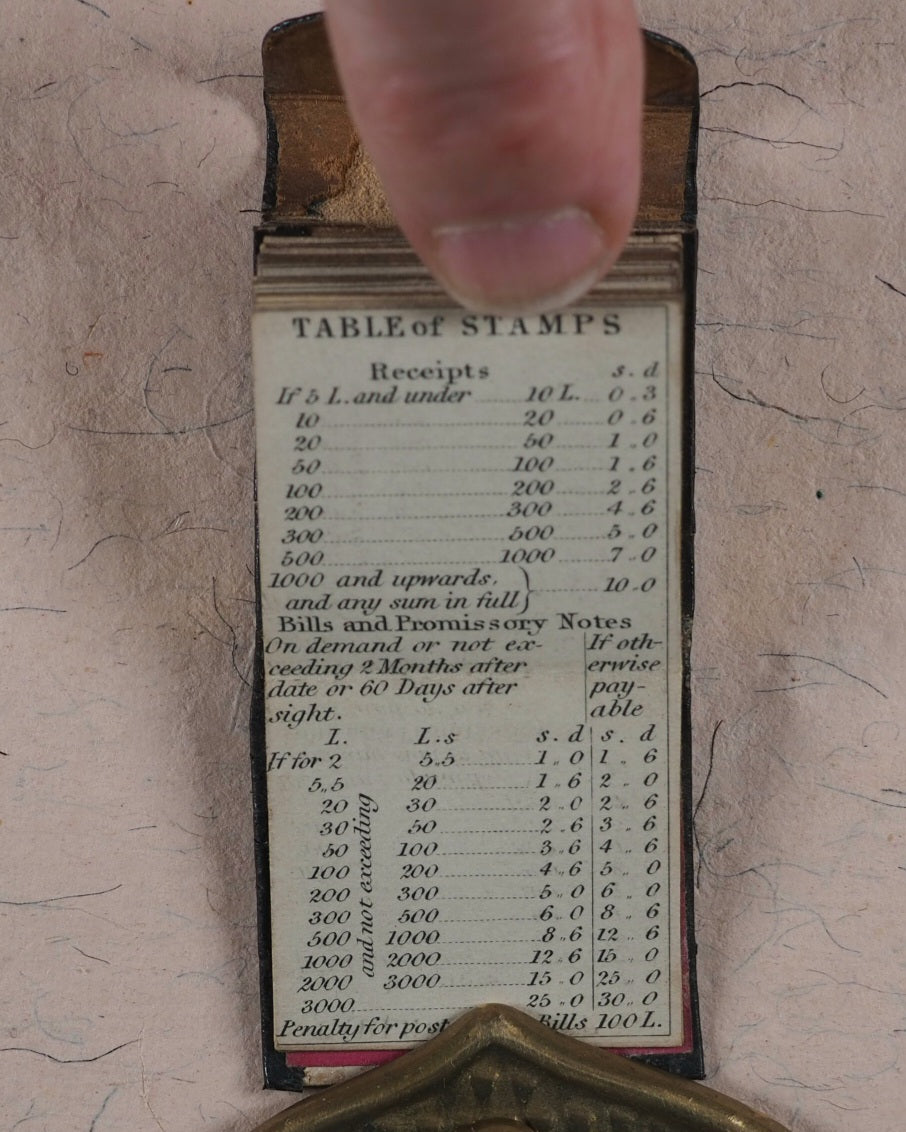 TABLE of STAMPS
Receipts s. d
If 5 L. and under 10 L. 0.3
10 20 0.6
20 50 1.0
50 100 1.6
100 200 2.6
200 300 4.6
300 500 5.0
500 1000 7.0
1000 and upwards, } 10.0
and any sum in full
Bills and Promissory Notes
On demand or not ex- If oth-
ceeding 2 Months after erwise
date or 60 Days after pay-
sight. able
L. L.s s. d s. d
If for 2 5,,5 1,,0 1,,6
5,,5 20 1,,6 2,,0
20 30 2,,0 2,,6
30 50 2,,6 3,,6
50 100 3,,6 4,,6
100 200 4,,6 5,,0
200 300 5,,0 6,,0
300 500 6,,0 8,,6
500 1000 8,,6 12,,6
1000 2000 12,,6 15,,0
2000 3000 15,,0 25,,0
3000 25,,0 30,,0
and not exceeding
Penalty for post Bills 100 L.